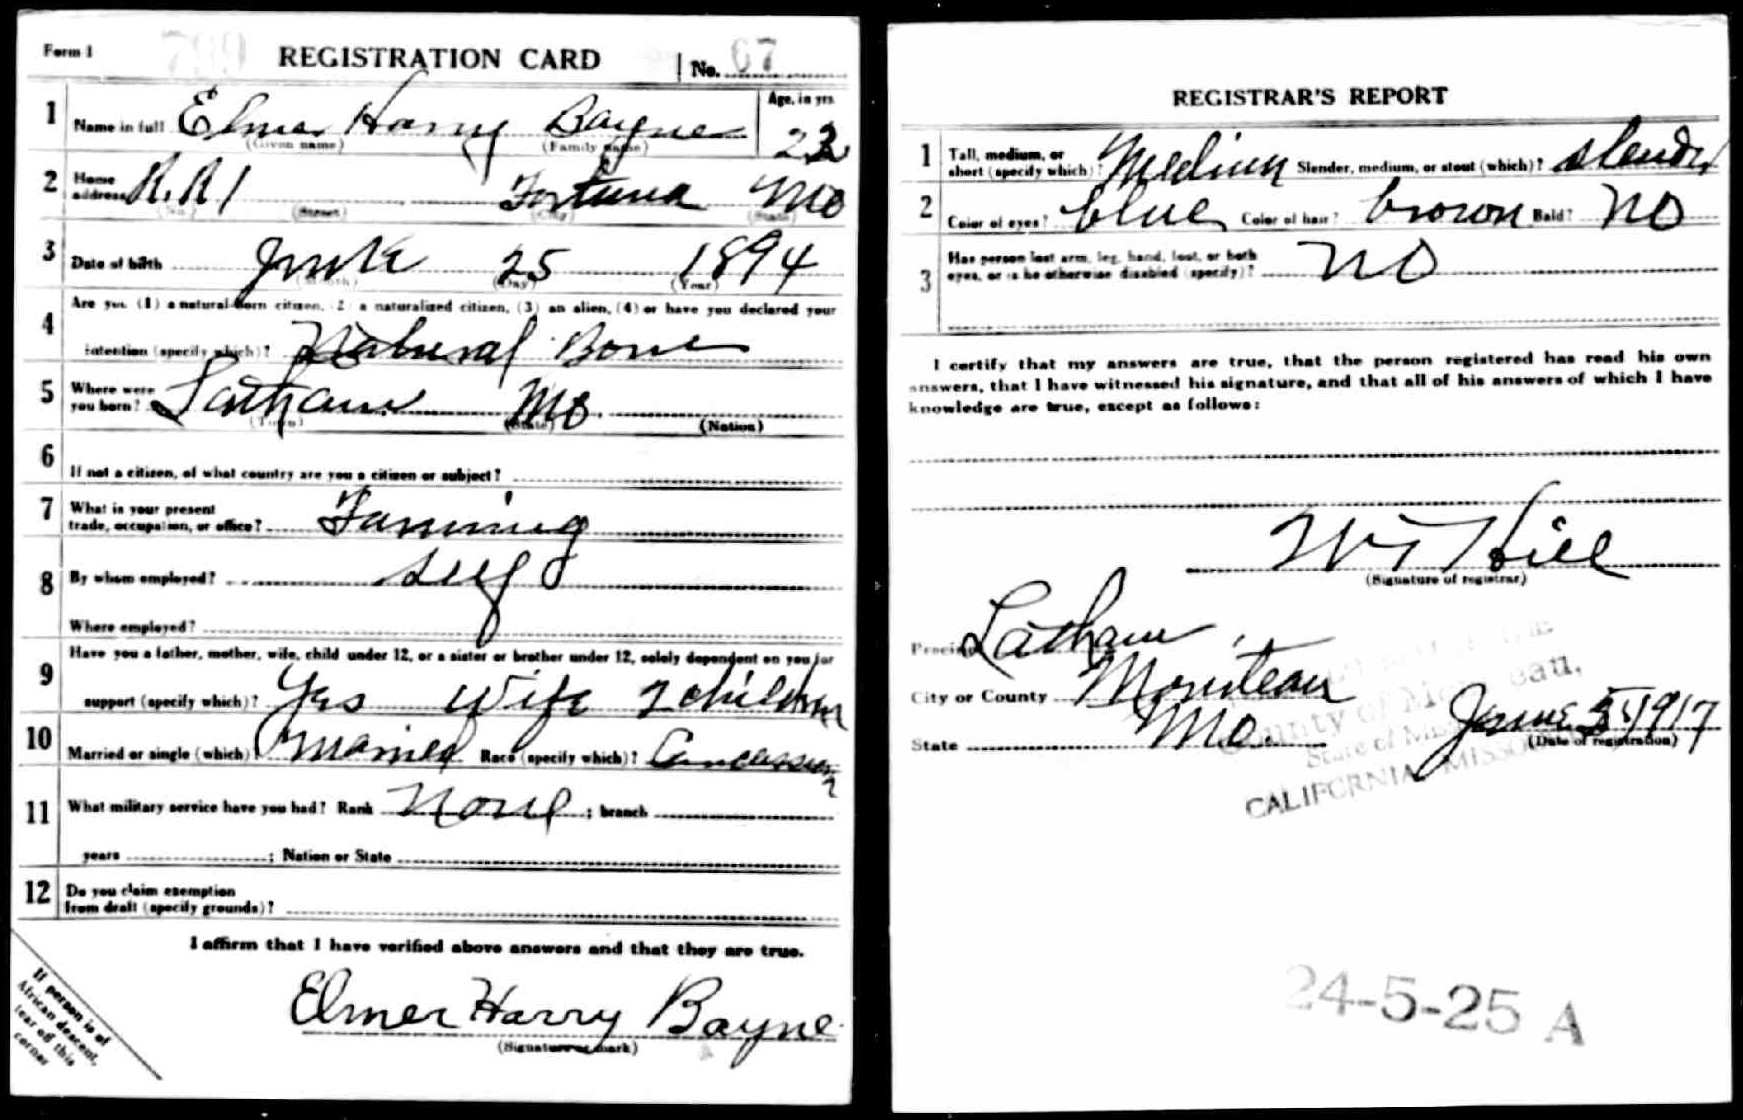 Form 1 REGISTRATION CARD No. 67
1 Name in full Elmer Harry Bayne Age, in yrs.
(Given name) (Family name) 22
2 Home address R.R 1 Fortuna Mo
(No.) (Street) (City) (State)
3 Date of birth June 25 1894
(Month) (Day) (Year)
4 Are you (1) a natural-born citizen, (2) a naturalized citizen, (3) an alien, (4) or have you declared your
intention (specify which)? Natural Born
5 Where were you born? Latham Mo.
(Town) (State) (Nation)
6 If not a citizen, of what country are you a citizen or subject?
7 What is your present
trade, occupation, or office? Farming
8 By whom employed? self
Where employed?
9 Have you a father, mother, wife, child under 12, or a sister or brother under 12, solely dependent on you for
support (specify which)? Yes wife 2 children
10 Married or single (which) Married Race (specify which)? Caucassian
11 What military service have you had? Rank None ; branch
years ; Nation or State
12 Do you claim exemption
from draft (specify grounds)?
I affirm that I have verified above answers and that they are true.
Elmer Harry Bayne
(Signature or mark)
If person is of
African descent,
tear off this
corner
REGISTRAR'S REPORT
1 Tall, medium, or
short (specify which)? Medium Slender, medium, or stout (which)? slender
2 Color of eyes? blue Color of hair? brown Bald? No
3 Has person lost arm, leg, hand, foot, or both
eyes, or is he otherwise disabled (specify)? No
I certify that my answers are true, that the person registered has read his own
answers, that I have witnessed his signature, and that all of his answers of which I have
knowledge are true, except as follows:
Hill
(Signature of registrar)
Precinct Latham
City or County Moniteau
State Mo. June 5 1917
(Date of registration)
County of Moniteau,
State of Missouri
CALIFORNIA, MISSOURI
24-5-25 A